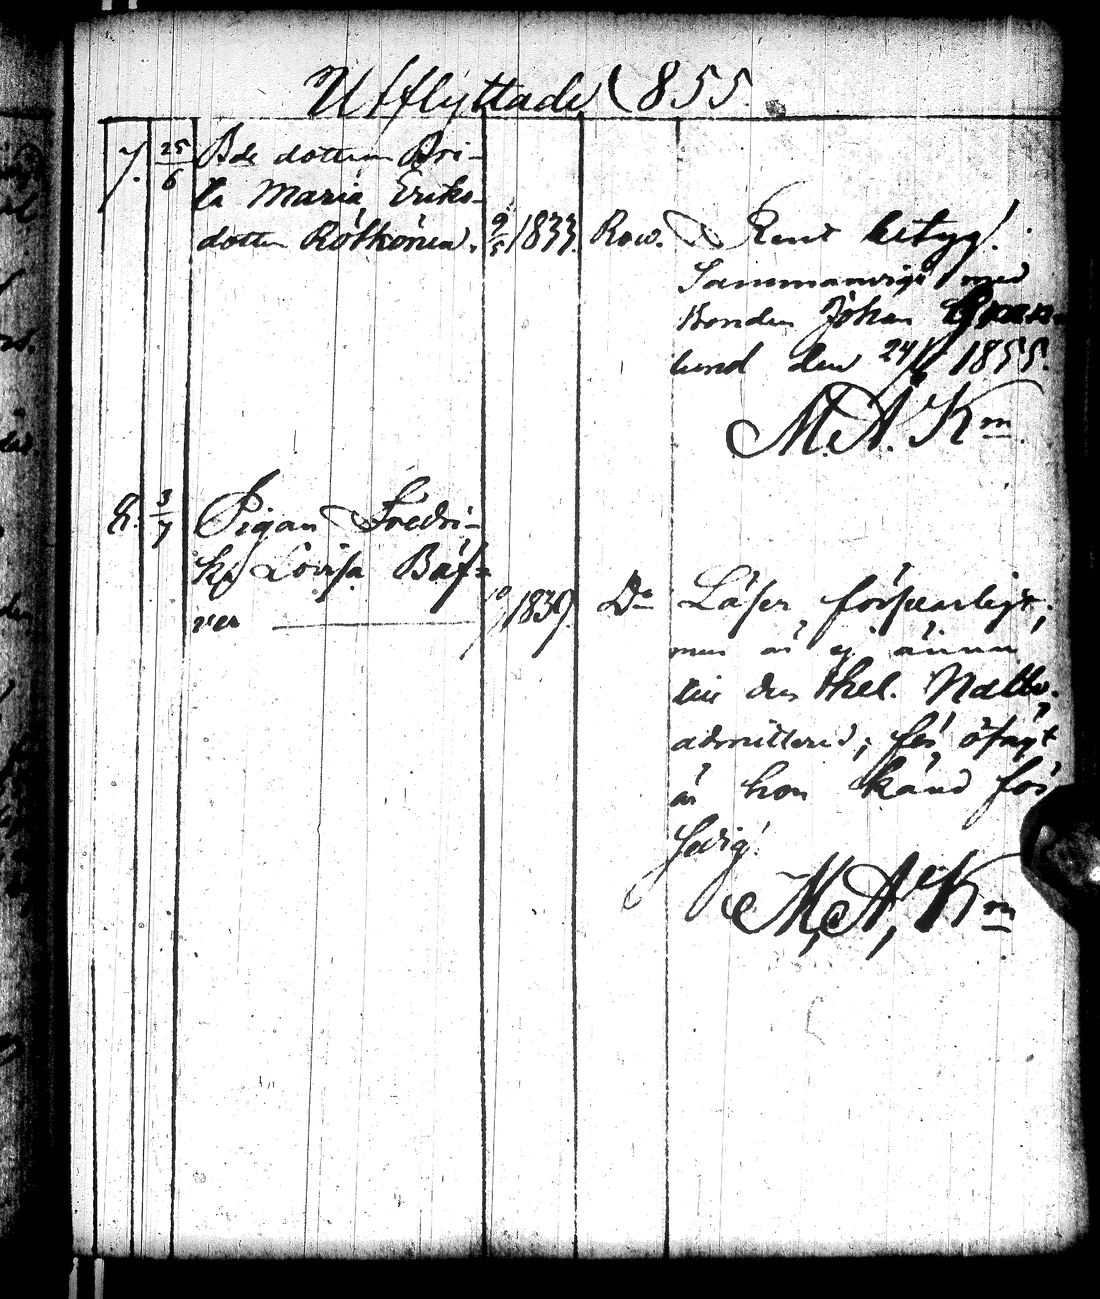 Utflyttade 1855.
7. 25/6 Bde dottern Bri-
ta Maria Eriks-
dotter Rötkönen. 9/5 1833. Row. Rent betyg!
Sammanvigd med
Bonden Johan Gran
lund den 24/6 1855.
M. A. Km
8. 3/7 Pigan Fredri-
ka Lovisa Bäf-
ver 10/7 1839. Do Läser försvarligt;
men är ej ännu
till den Hel. Nattv.
admitterad; för öfrigt
är hon känd för
sedig!
M, A, Km